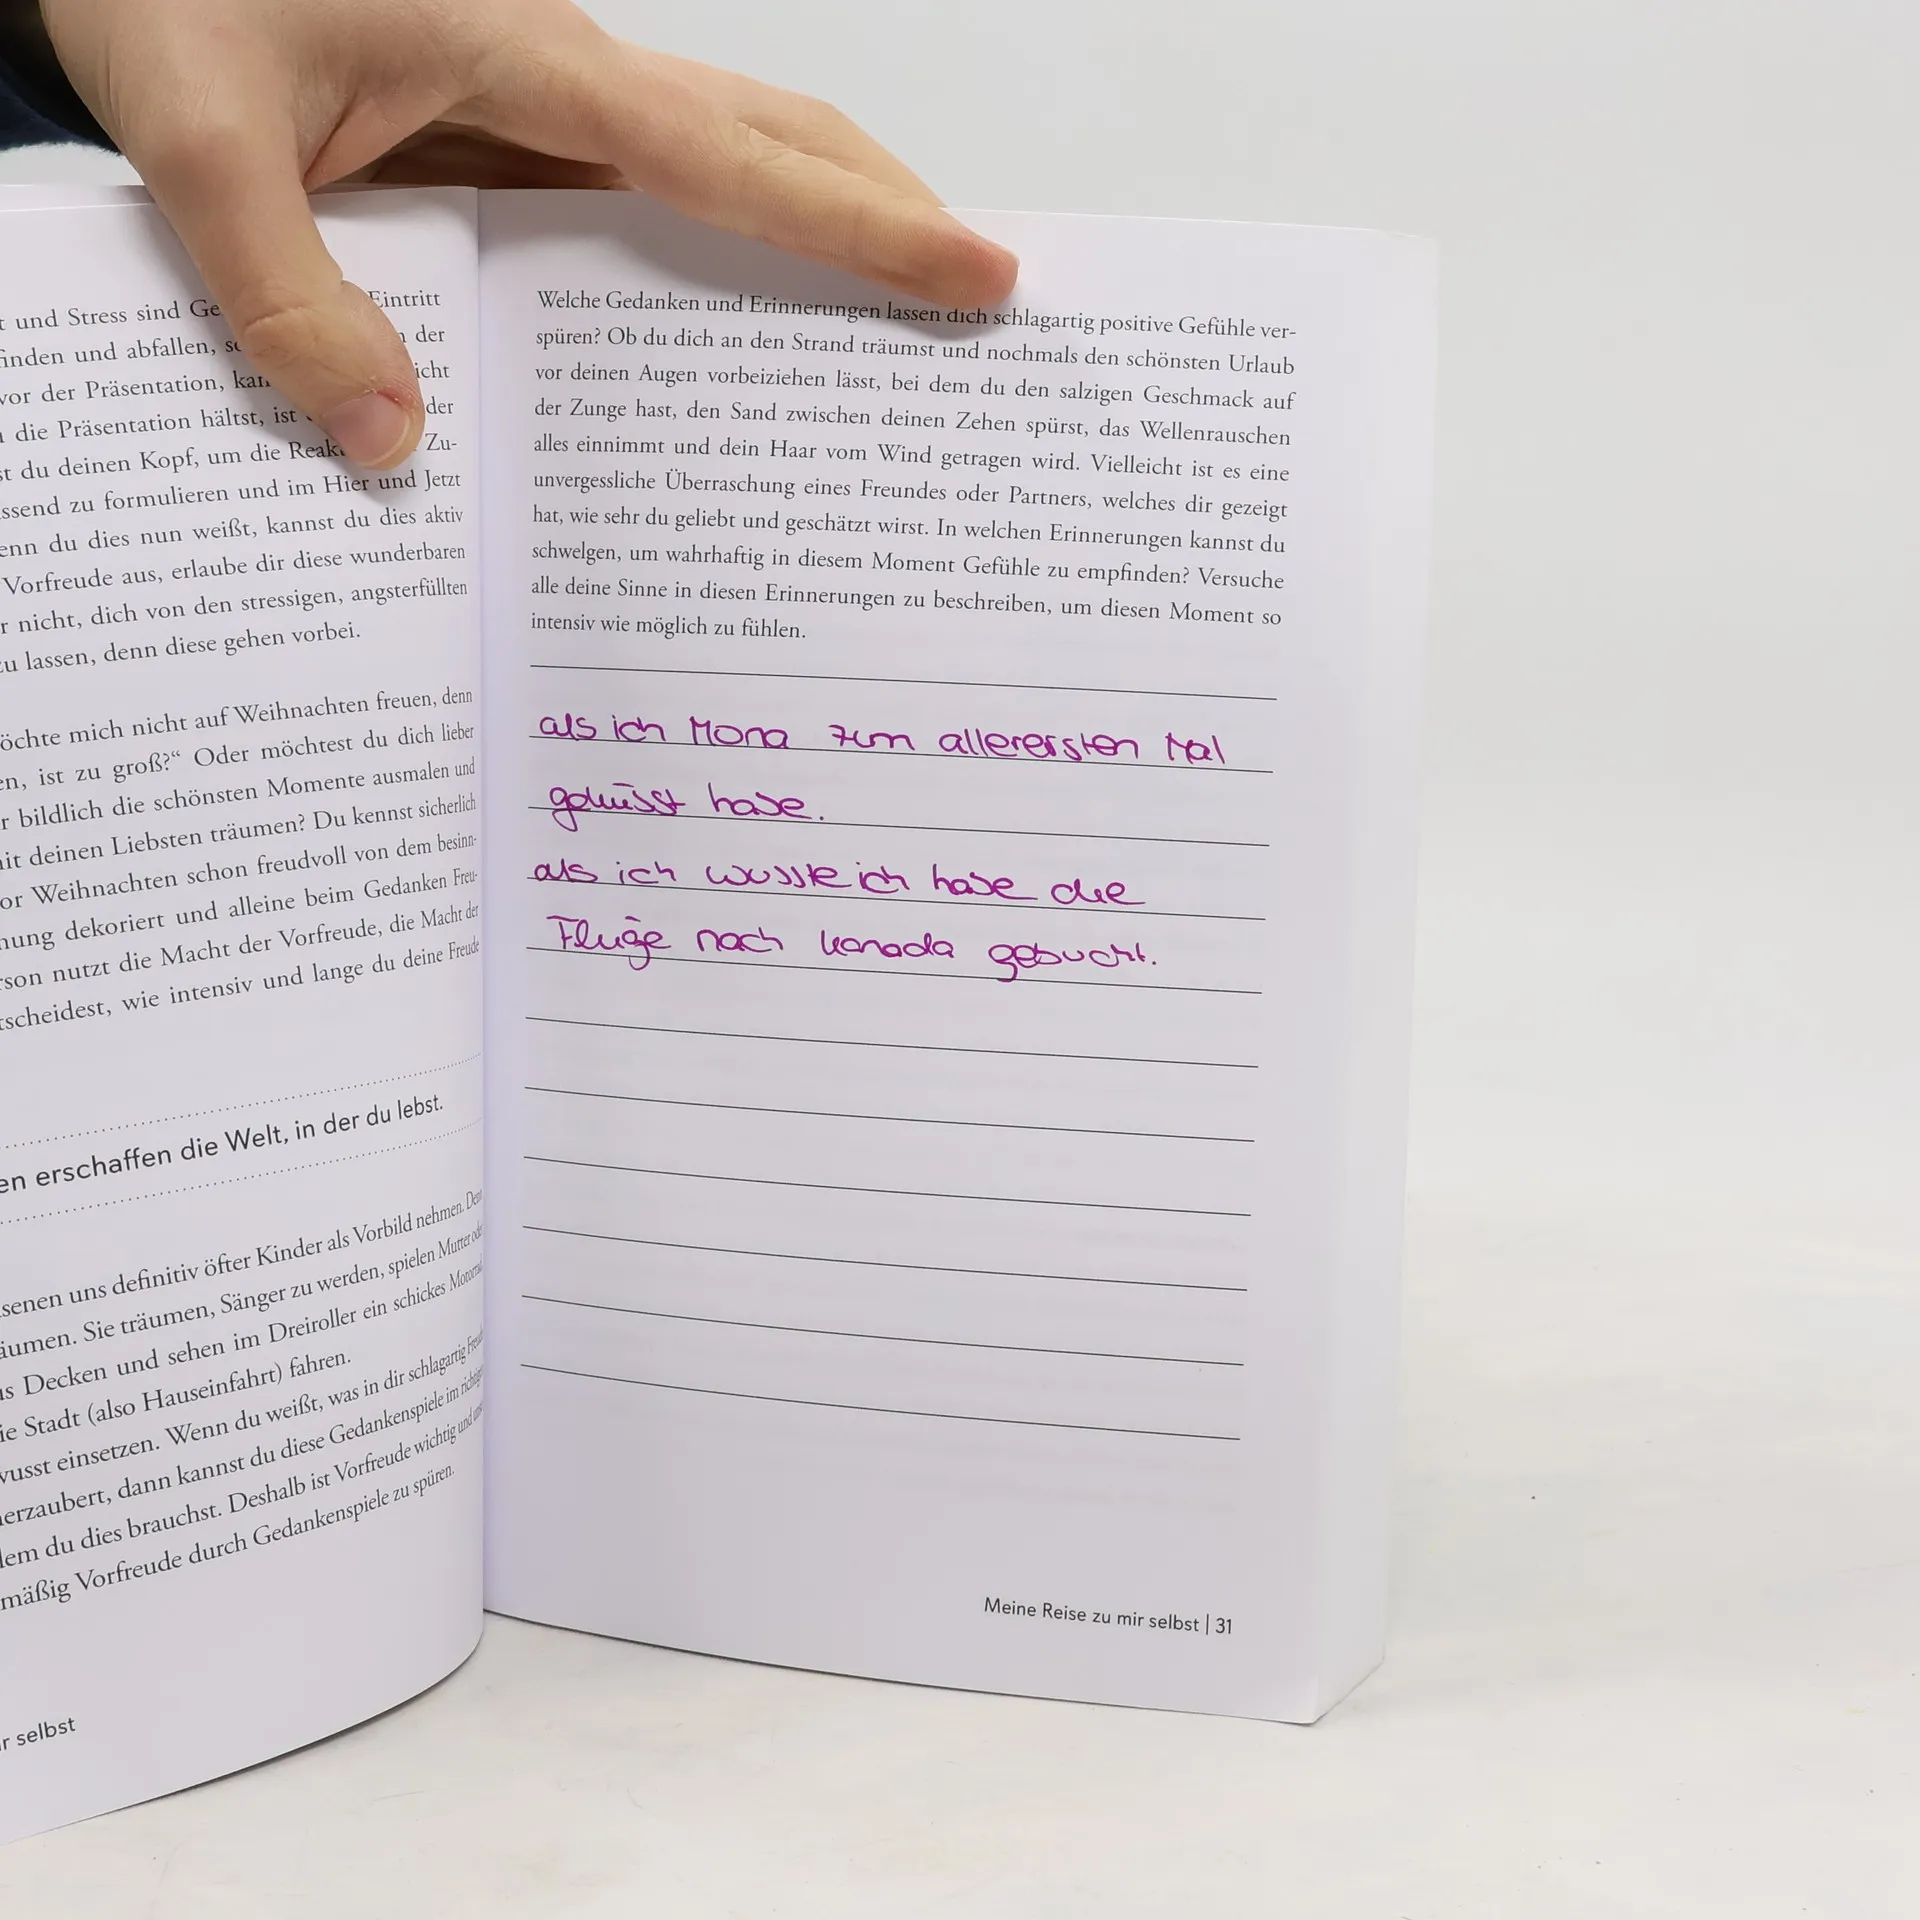 t und Stress sind Ge Eintritt
finden und abfallen, der
vor der Präsentation, icht
die Präsentation hältst, ist der
st du deinen Kopf, um die Zu-
ssend zu formulieren und im Hier und Jetzt
enn du dies nun weißt, kannst du dies aktiv
Vorfreude aus, erlaube dir diese wunderbaren
r nicht, dich von den stressigen, angsterfüllten
zu lassen, denn diese gehen vorbei.
öchte mich nicht auf Weihnachten freuen, denn
en, ist zu groß?“ Oder möchtest du dich lieber
r bildlich die schönsten Momente ausmalen und
it deinen Liebsten träumen? Du kennst sicherlich
or Weihnachten schon freudvoll von dem besinn-
nung dekoriert und alleine beim Gedanken Freu-
rson nutzt die Macht der Vorfreude, die Macht der
tscheidest, wie intensiv und lange du deine Freude
en erschaffen die Welt, in der du lebst.
senen uns definitiv öfter Kinder als Vorbild nehmen. Denn
äumen. Sie träumen, Sänger zu werden, spielen Mutter oder
us Decken und sehen im Dreiroller ein schickes Motorrad
ie Stadt (also Hauseinfahrt) fahren.
wusst einsetzen. Wenn du weißt, was in dir schlagartig Freude
herzaubert, dann kannst du diese Gedankenspiele im richtigen
dem du dies brauchst. Deshalb ist Vorfreude wichtig und
mäßig Vorfreude durch Gedankenspiele zu spüren.
r selbst
Welche Gedanken und Erinnerungen lassen dich schlagartig positive Gefühle ver-
spüren? Ob du dich an den Strand träumst und nochmals den schönsten Urlaub
vor deinen Augen vorbeiziehen lässt, bei dem du den salzigen Geschmack auf
der Zunge hast, den Sand zwischen deinen Zehen spürst, das Wellenrauschen
alles einnimmt und dein Haar vom Wind getragen wird. Vielleicht ist es eine
unvergessliche Überraschung eines Freundes oder Partners, welches dir gezeigt
hat, wie sehr du geliebt und geschätzt wirst. In welchen Erinnerungen kannst du
schwelgen, um wahrhaftig in diesem Moment Gefühle zu empfinden? Versuche
alle deine Sinne in diesen Erinnerungen zu beschreiben, um diesen Moment so
intensiv wie möglich zu fühlen.
als ich Mona zum allerersten Mal
geküsst habe.
als ich wusste ich habe die
Flüge nach Kanada gebucht.
Meine Reise zu mir selbst | 31